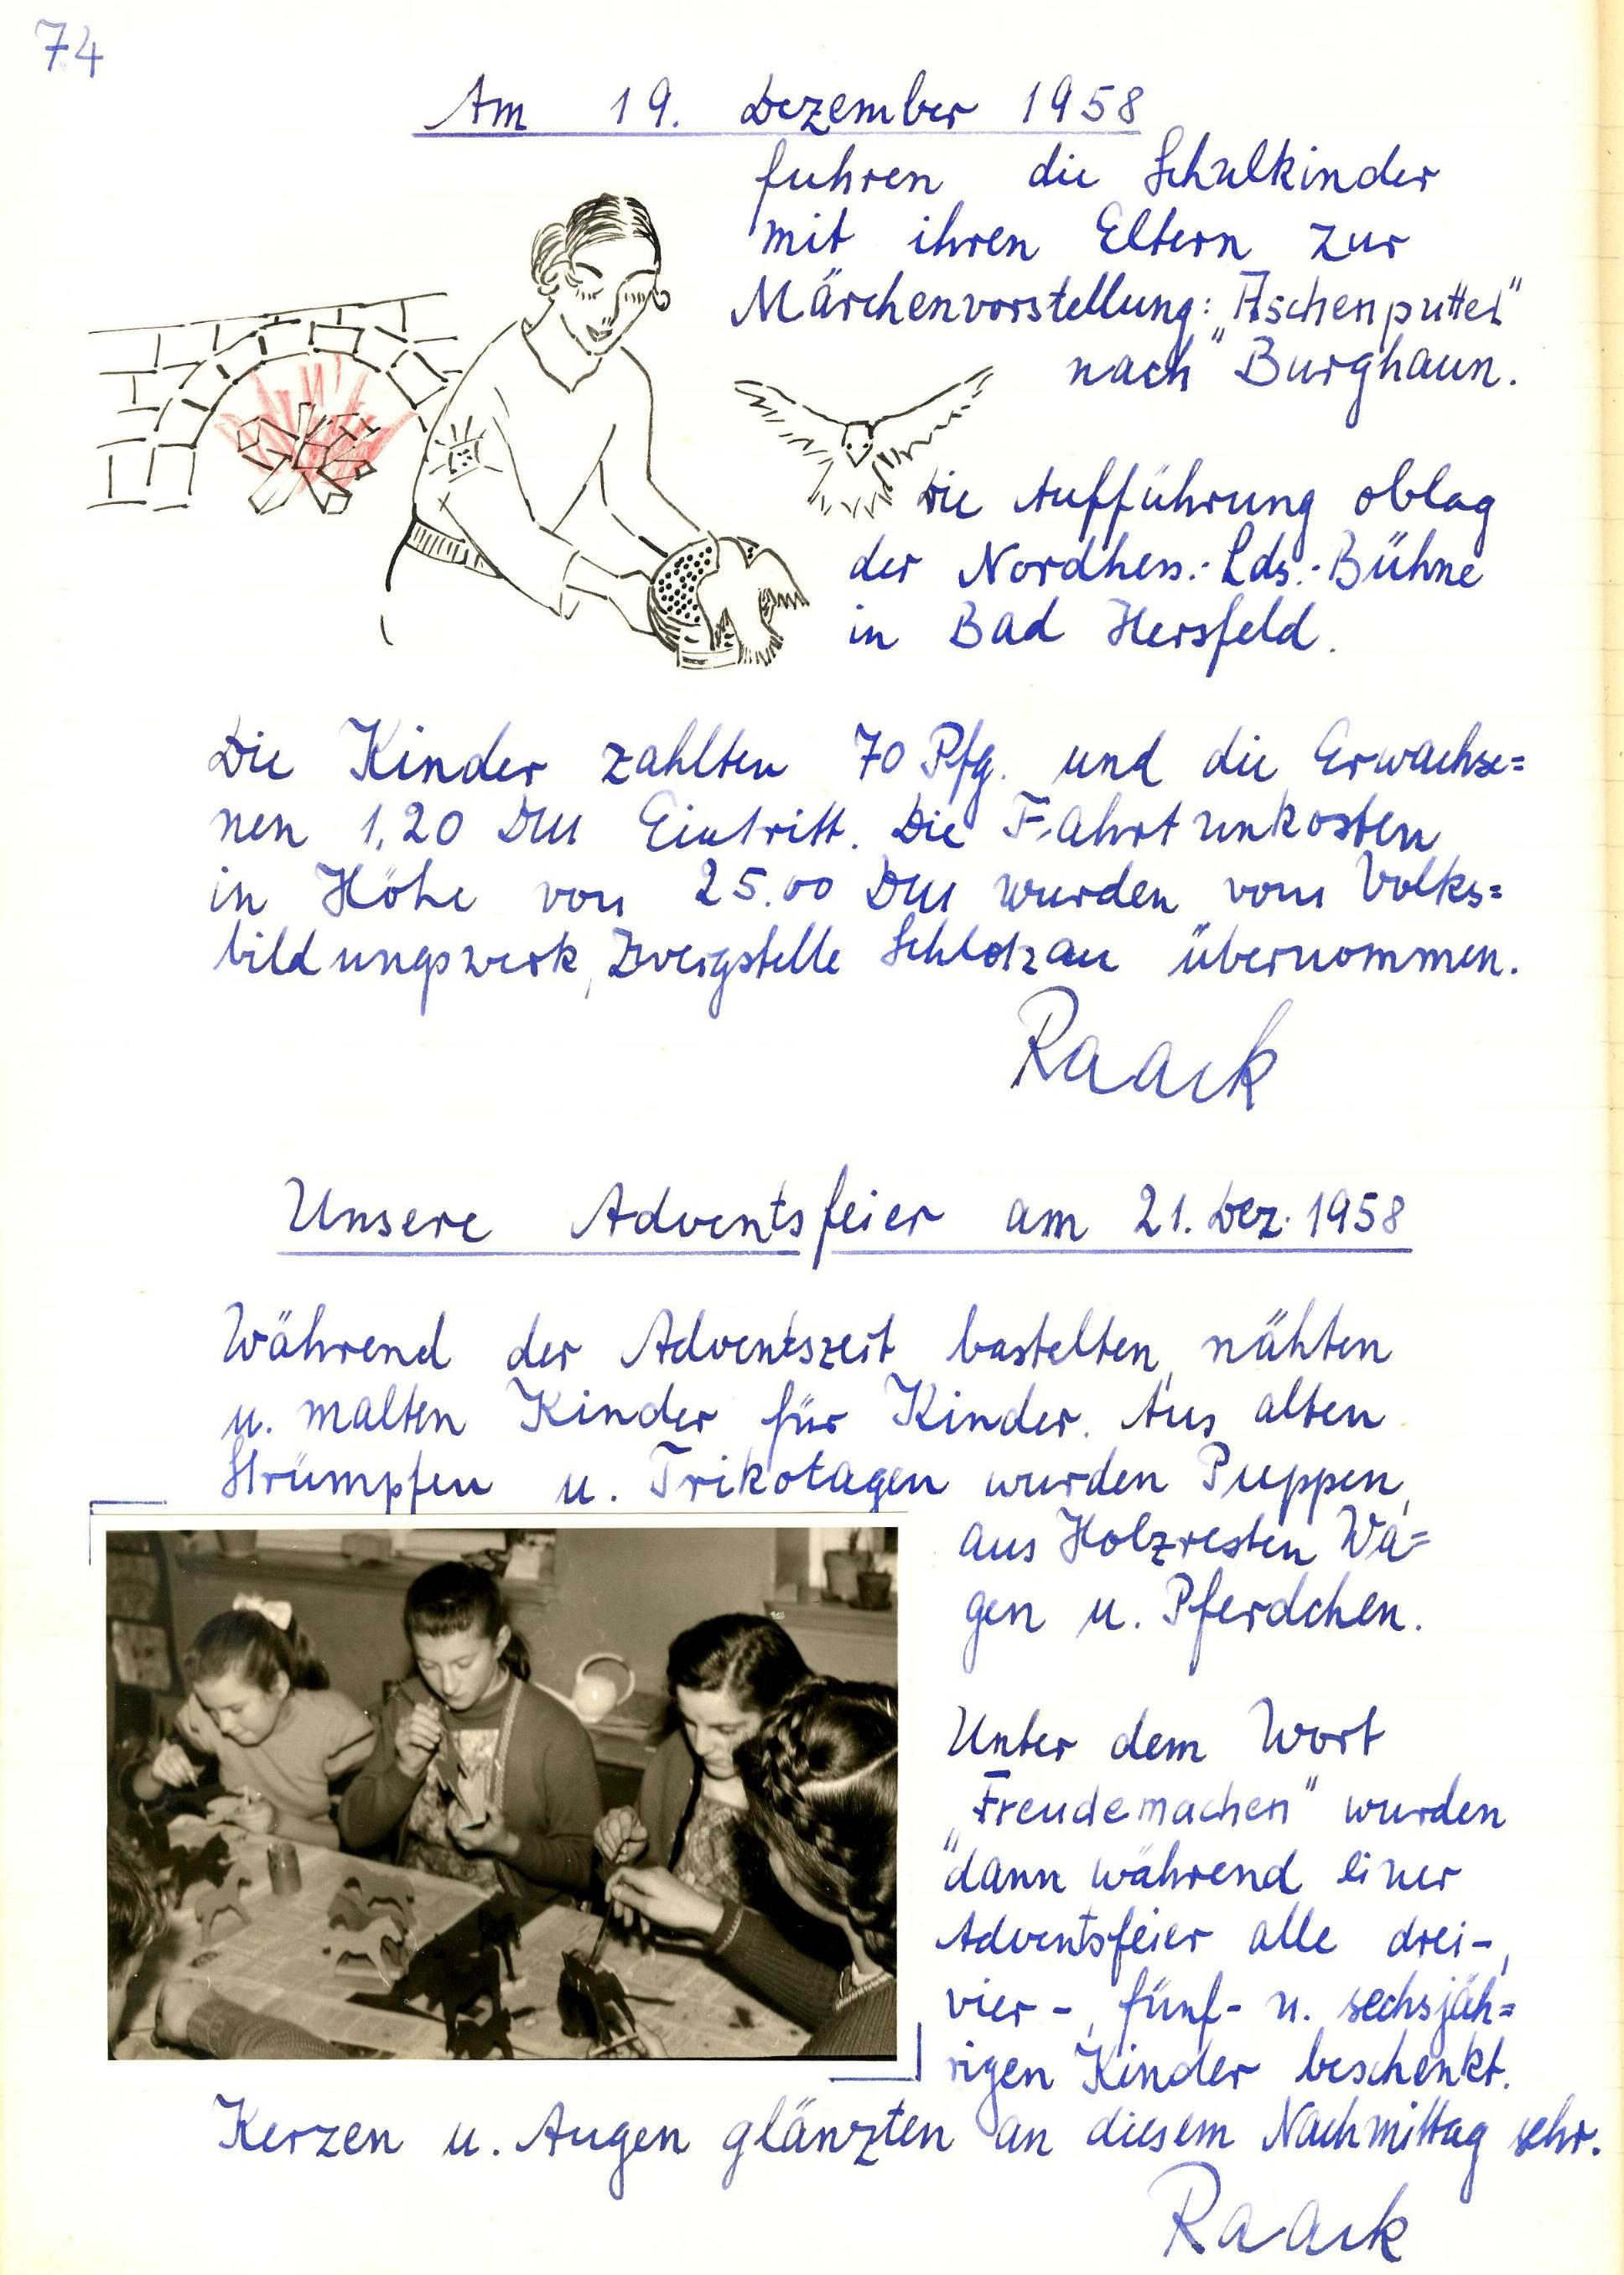 74
Am 19. Dezember 1958
fuhren die Schulkinder
mit ihren Eltern zur
Märchenvorstellung: „Aschenputtel"
nach Burghaun.
Die Aufführung oblag
der Nordhess.-Lds.-Bühne
in Bad Hersfeld.
Die Kinder zahlten 70 Pfg. und die Erwachse=
nen 1,20 DM Eintritt. Die Fahrtunkosten
in Höhe von 25.00 DM wurden vom Volks=
bildungswerk, Zweigstelle Schlotzau übernommen.
Raack
Unsere Adventsfeier am 21. Dez. 1958
Während der Adventszeit bastelten, nähten
u. malten Kinder für Kinder. Aus alten
Strümpfen u. Trikotagen wurden Puppen,
aus Holzresten Wa=
gen u. Pferdchen.
Unter dem Wort
„Freudemachen" wurden
dann während einer
Adventsfeier alle drei-,
vier-, fünf- u. sechsjäh=
rigen Kinder beschenkt.
Kerzen u. Augen glänzten an diesem Nachmittag sehr.
Raack